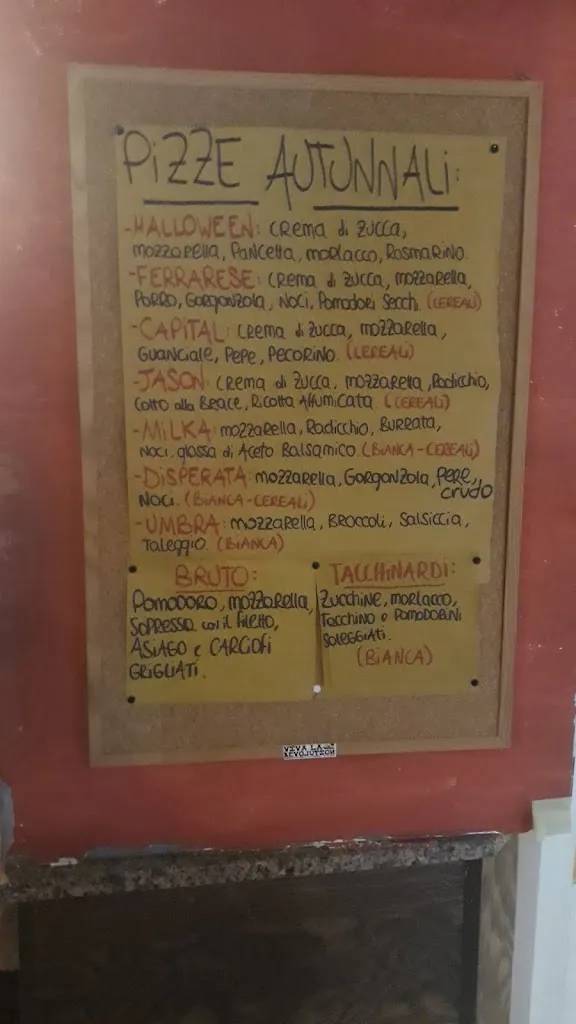 PIZZE AUTUNNALI:
-HALLOWEEN: CREMA di ZUCCA,
MOZZARELLA, PANCETTA, MORLACCO, ROSMARINO.
-FERRARESE: CREMA di ZUCCA, MOZZARELLA,
PORRO, GORGONZOLA, NOCI, POMODORI SECCHI. (CEREALI)
-CAPITAL: CREMA di ZUCCA, MOZZARELLA,
GUANCIALE, PEPE, PECORINO. (CEREALI)
-JASON: CREMA di ZUCCA, MOZZARELLA, RADICCHIO,
COTTO alla BRACE, RICOTTA AFFUMICATA. (CEREALI)
-MILKA: MOZZARELLA, RADICCHIO, BURRATA,
NOCI, glassa di ACETO BALSAMICO. (BIANCA-CEREALI)
-DISPERATA: MOZZARELLA, GORGONZOLA, PERE, CRUDO
NOCI. (BIANCA-CEREALI)
-UMBRA: MOZZARELLA, BROCCOLI, SALSICCIA,
TALEGGIO. (BIANCA)
BRUTO:
POMODORO, MOZZARELLA,
SOPRESSA con il FILETTO,
ASIAGO e CARCIOFI
GRIGLIATI.
TACCHINARDI:
ZUCCHINE, MORLACCO,
TACCHINO e POMODORINI
SOLEGGIATI.
(BIANCA)
VIVA LA
REVOLUTION